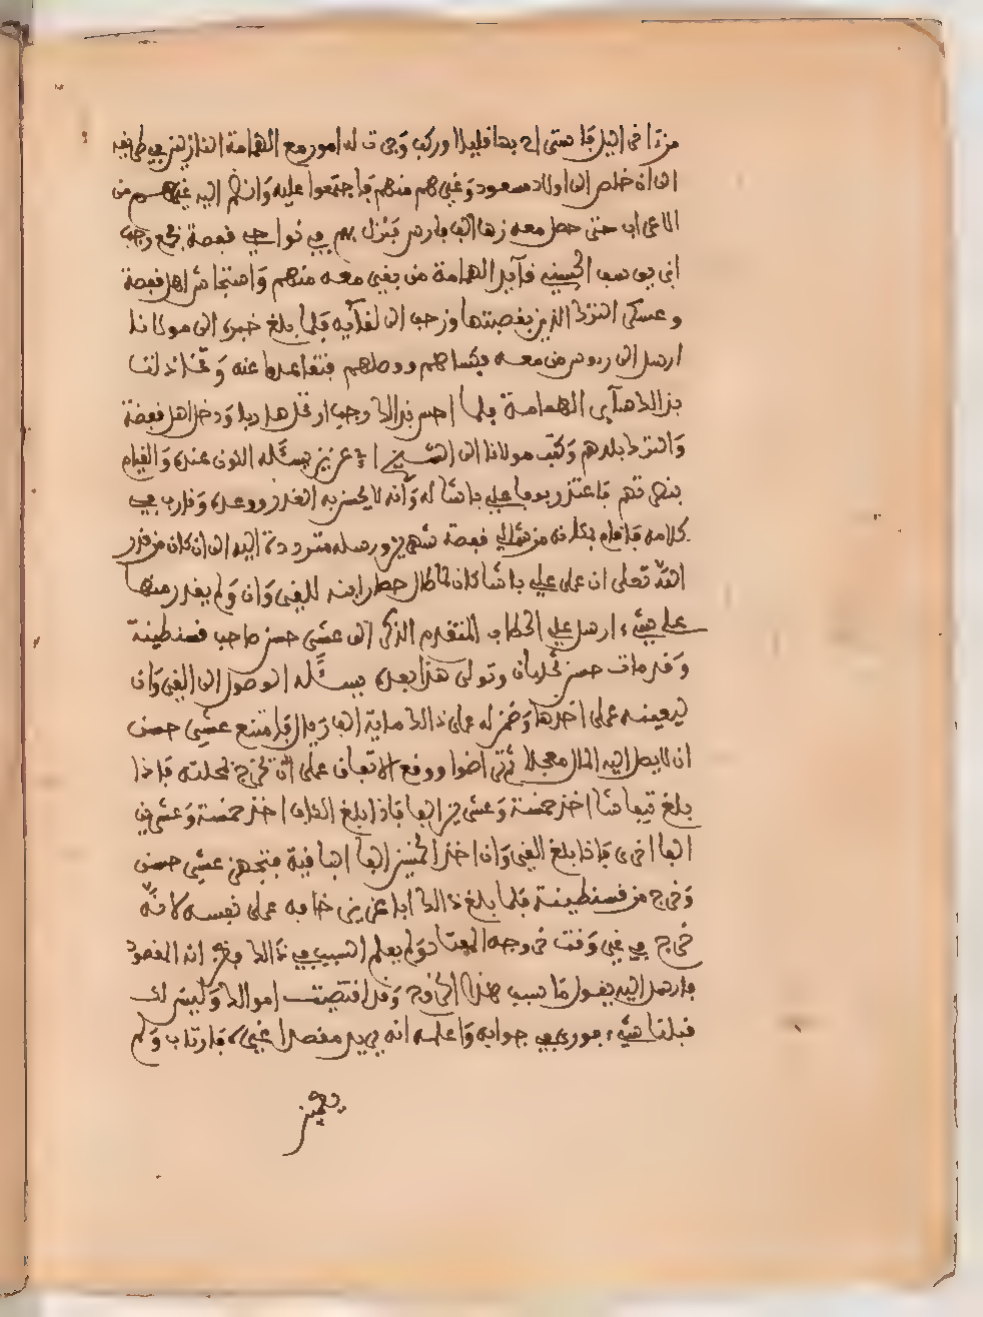 من ءاخر اليل فاستراح بها قليلا وركب وجرت له امور مع الهمامة النازلين في طريقه
الى ان خلص الى اولاد مسعود وغيرهم منهم فاجتمعوا عليه وانضم اليه غيرهم من
الاعراب حتى حصل معه زهاء الف فارس فنزل بهم في نواحي قفصة فجمع رجب
ابن يوسف الحسيني قآيد الهمامة من بقي معه منهم واستجاش اهل قفصة
وعسكر الترك الذين بقصبتها وزحف الى لقآيه فلما بلغ خبره الى مولانا
ارسل الى رءوس من معه فكساهم ووصلهم فتقاعدوا عنه وتخاذلت
بذالك سآير الهمامة فلما احس بذالك رجب ارتحل هاربا ودخل اهل قفصة
والترك بلدهم وكتب مولانا الى الشيخ ابي عزيز يسئله الكون عنده والقيام
بنصرتهم فاعتذر بوفا علي باشا له وانه لا يحسن به الغدر ووعده وقارب في
كلامه فاقام بمكانه من شمالي قفصة شهرين ورسله مترددة اليه الى ان كان من قدر
الله تعلى ان عمل علي باشا كان لما طال حصار ابنه للقيروان ولم يقدر منها
على شيء ارسل علي الحطاب المتقدم الذكر الى عشي حسن صاحب قسنطينة
وقد مات حسن كليان وتولى هذا بعده يسئله الوصول الى القيروان
ليعينه على اخذها وضمن له على ذالك ماية الف ريال فامتنع عشي حسن
ان لا يصل اليه المال معجلا ثم تراضوا ووقع الاتفاق على ان يخرج بمحلته فاذا
بلغ تيفاشا اخذ خمسة وعشرين الفا فاذا بلغ الكاف اخذ خمسة وعشرين
الفا اخرى فاذا بلغ القيروان اخذ الخمسين الفا الباقية فتجهز عشي حسن
وخرج من قسنطينة فلما بلغ ذالك ابا عزيز خافه على نفسه لانه
خرج في غير وقت خروجه المعتاد ولم يعلم السبب في ذالك وظن انه المقصود
فارسل اليه يقول ما سبب هذا الخروج وقد اقتضيت اموالك وليس لك
قبلنا شيء فورى في جوابه واعلمه انه يريد مقصدا غيره فارتاب ولم